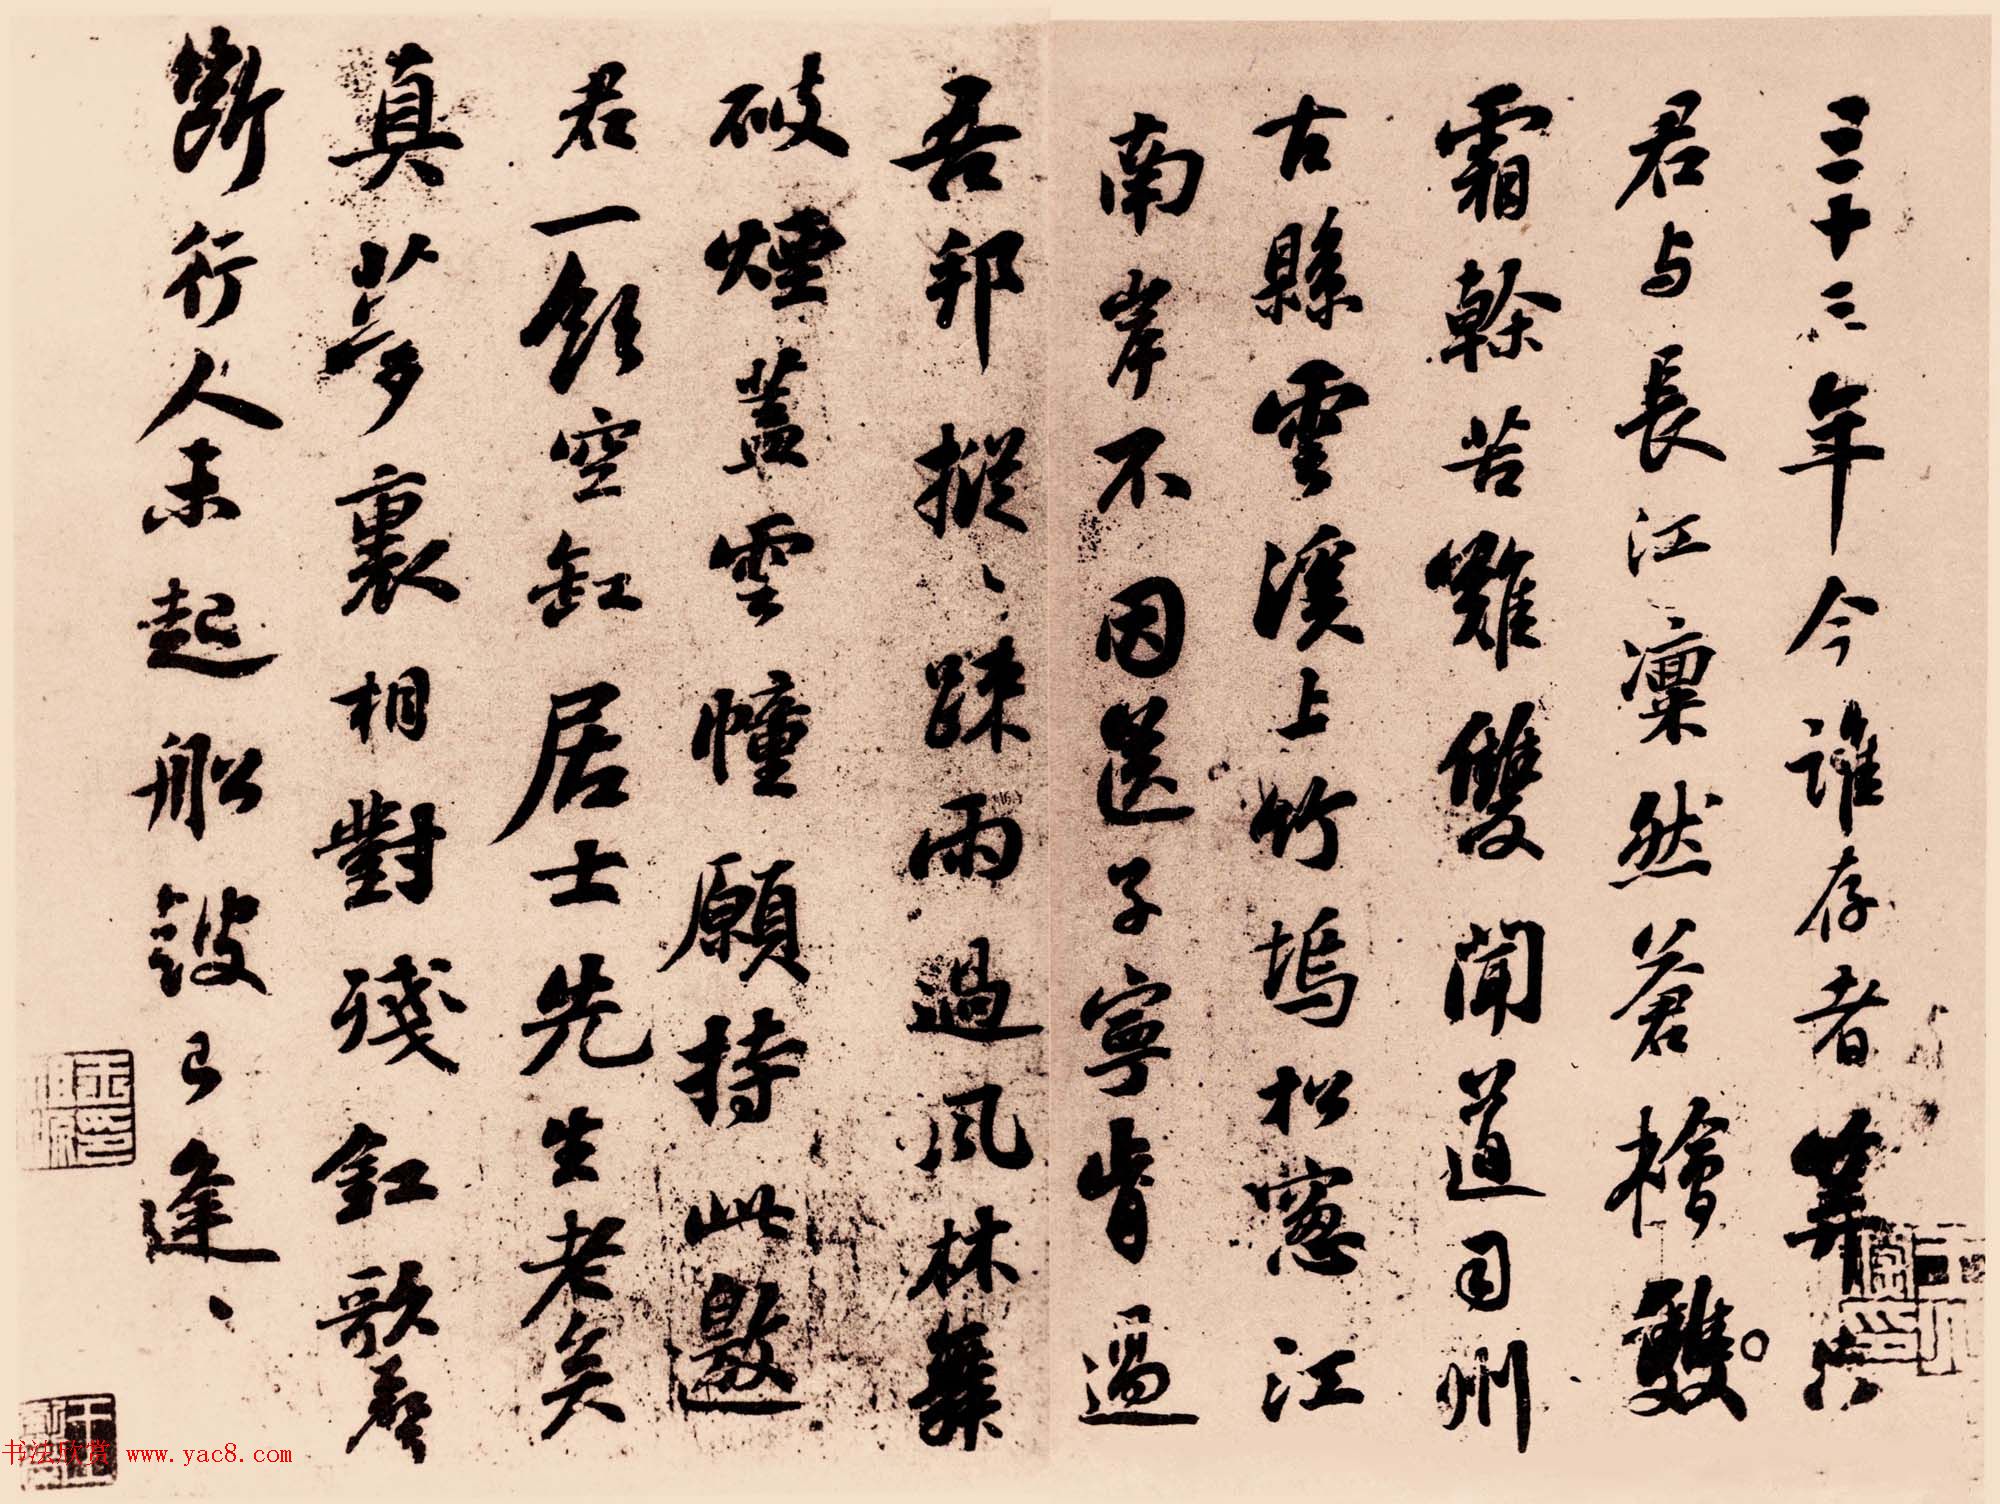 三十三年今誰存者算只
君与長江凜然蒼檜雙
霜幹苦難雙聞道司州
古縣雲溪上竹塢松窓江
南岸不因送子寧肯過
吾邦摐〻踈雨過風林舞
破煙蓋雲幢願持此邀
君一飲空缸居士先生老矣
真夢裏相對殘釭歌聲
斷行人未起船鼓已逢〻
书法欣赏 www.yac8.com